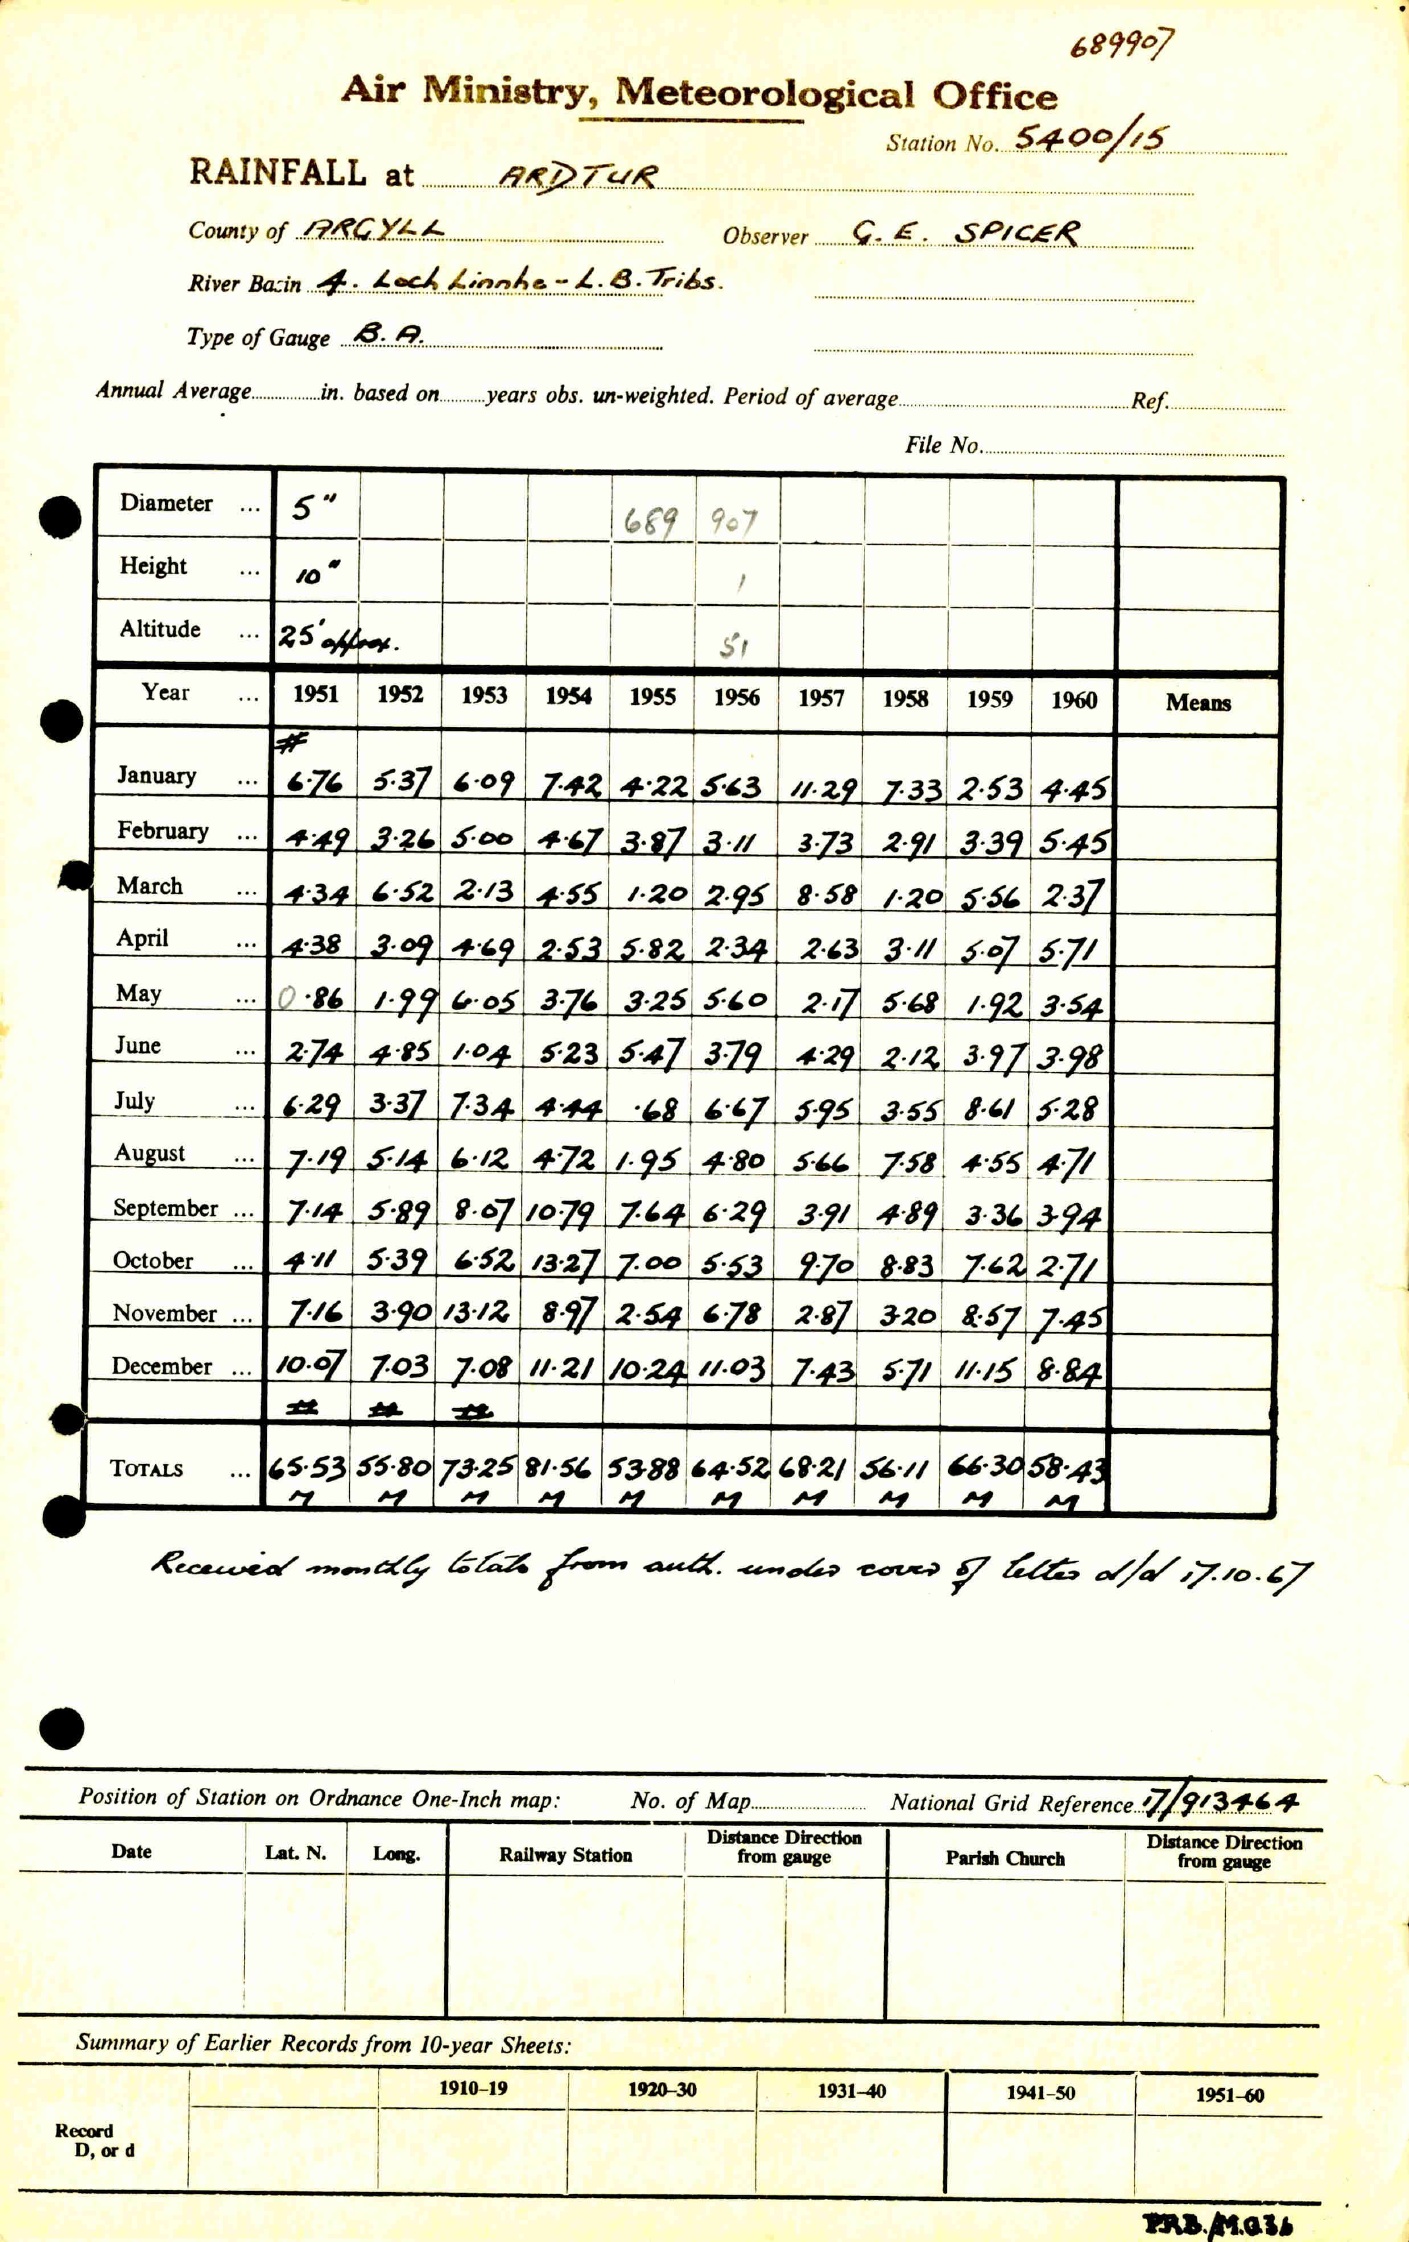 689907
Air Ministry, Meteorological Office
Station No. 5400/15
RAINFALL at ARDTUR
County of ARGYLL Observer G. E. SPICER
River Basin 4. Loch Linnhe - L. B. Tribs.
Type of Gauge B. A.
Annual Average in. based on years obs. un-weighted. Period of average Ref.
File No.
Diameter ... 5" 689 907
Height ... 10" 1
Altitude ... 25' approx. 51
Year ... 1951 1952 1953 1954 1955 1956 1957 1958 1959 1960 Means
January ... 6.76 5.37 6.09 7.42 4.22 5.63 11.29 7.33 2.53 4.45
February ... 4.49 3.26 5.00 4.67 3.87 3.11 3.73 2.91 3.39 5.45
March ... 4.34 6.52 2.13 4.55 1.20 2.95 8.58 1.20 5.56 2.37
April ... 4.38 3.09 4.69 2.53 5.82 2.34 2.63 3.11 5.07 5.71
May ... 0.86 1.99 6.05 3.76 3.25 5.60 2.17 5.68 1.92 3.54
June ... 2.74 4.85 1.04 5.23 5.47 3.79 4.29 2.12 3.97 3.98
July ... 6.29 3.37 7.34 4.44 .68 6.67 5.95 3.55 8.61 5.28
August ... 7.19 5.14 6.12 4.72 1.95 4.80 5.66 7.58 4.55 4.71
September ... 7.14 5.89 8.07 10.79 7.64 6.29 3.91 4.89 3.36 3.94
October ... 4.11 5.39 6.52 13.27 7.00 5.53 9.70 8.83 7.62 2.71
November ... 7.16 3.90 13.12 8.97 2.54 6.78 2.87 3.20 8.57 7.45
December ... 10.07 7.03 7.08 11.21 10.24 11.03 7.43 5.71 11.15 8.84
TOTALS ... 65.53 55.80 73.25 81.56 53.88 64.52 68.21 56.11 66.30 58.43
M M M M M M M M M M
Received monthly totals from auth. under cover of letter d/d 17.10.67
Position of Station on Ordnance One-Inch map: No. of Map National Grid Reference 17/913464
Date Lat. N. Long. Railway Station Distance Direction from gauge Parish Church Distance Direction from gauge
Summary of Earlier Records from 10-year Sheets:
1910–19 1920–30 1931–40 1941–50 1951–60
Record
D, or d